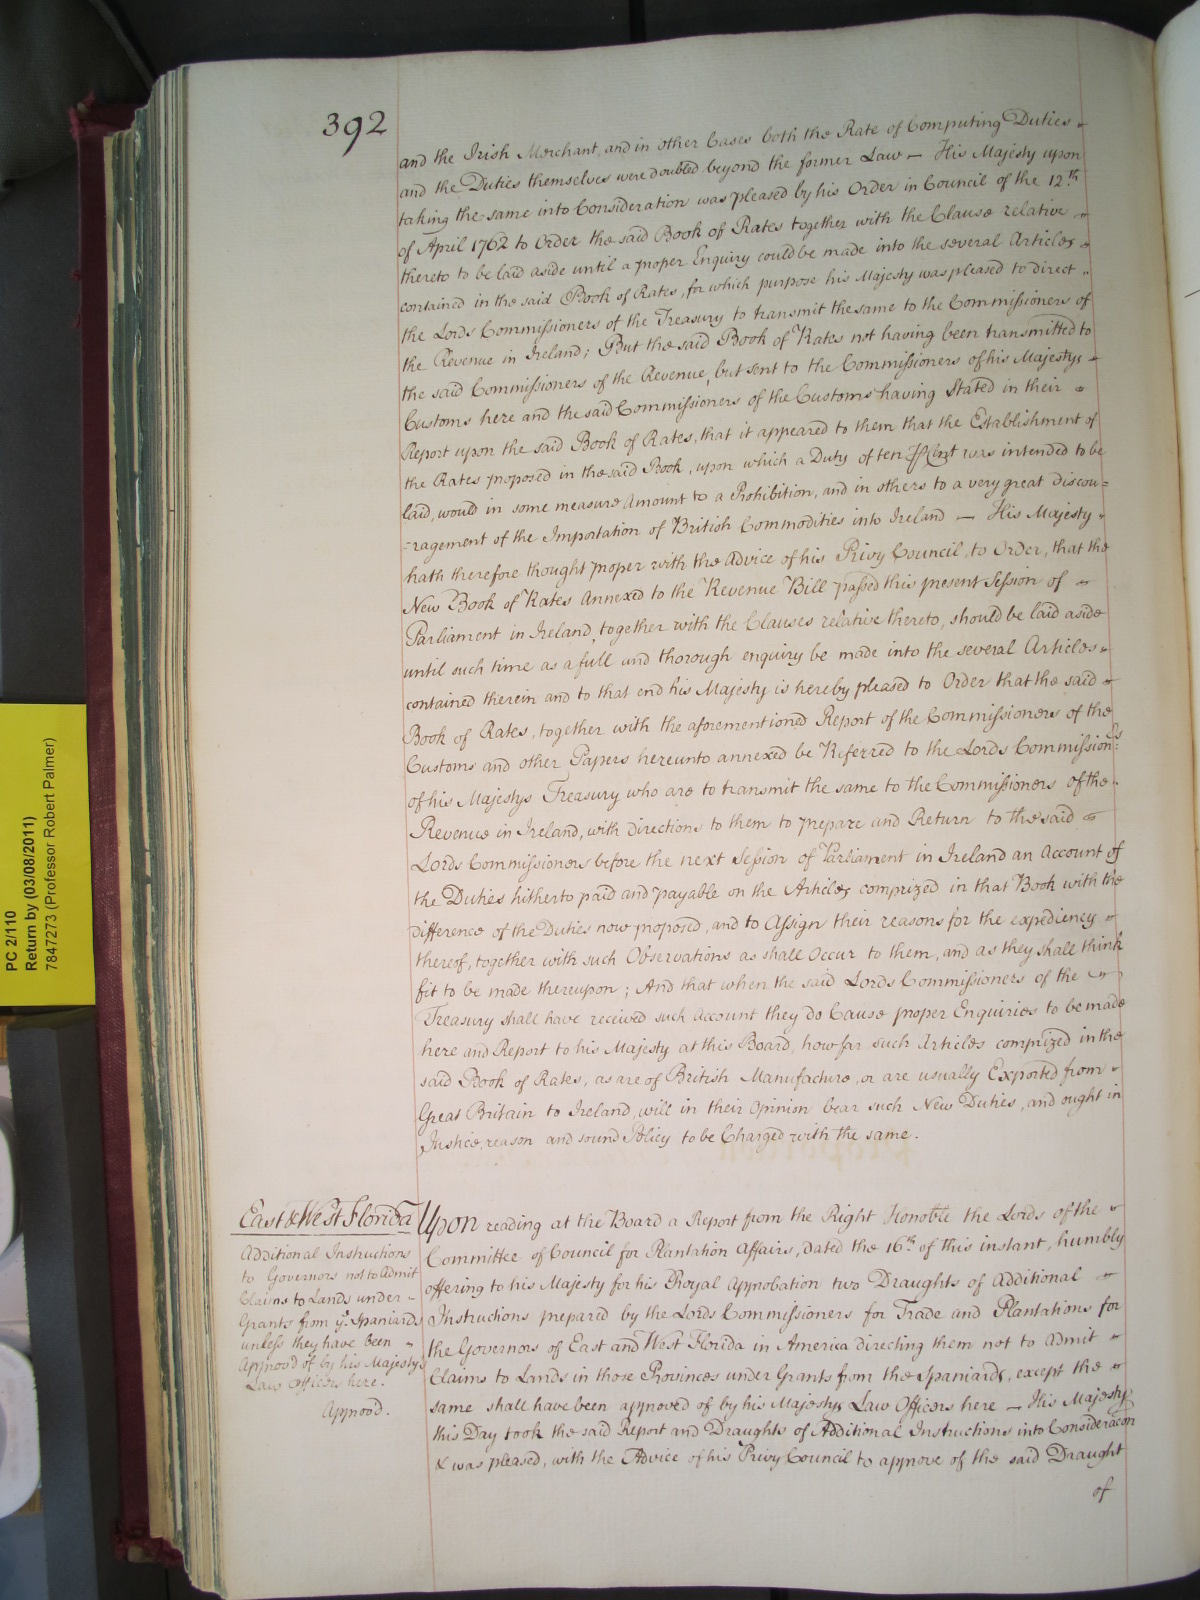 392
and the Irish Merchant, and in other Cases both the Rate of Computing Duties
and the Duties themselves were doubled beyond the former Law — His Majesty upon
taking the same into Consideration was pleased by his Order in Council of the 12th
of April 1762 to Order the said Book of Rates together with the Clause relative
thereto to be laid aside until a proper Enquiry could be made into the several Articles
contained in the said Book of Rates, for which purpose his Majesty was pleased to direct
the Lords Commissioners of the Treasury to transmit the same to the Commissioners of
the Revenue in Ireland; But the said Book of Rates not having been transmitted to
the said Commissioners of the Revenue, but sent to the Commissioners of his Majestys
Customs here and the said Commissioners of the Customs having Stated in their
Report upon the said Book of Rates, that it appeared to them that the Establishment of
the Rates proposed in the said Book, upon which a Duty of ten P Cent was intended to be
laid, would in some measure Amount to a Prohibition, and in others to a very great discou=
=ragement of the Importation of British Commodities into Ireland — His Majesty
hath therefore thought proper with the Advice of his Privy Council, to Order, that the
New Book of Rates Annexed to the Revenue Bill passed this present Session of
Parliament in Ireland, together with the Clauses relative thereto, should be laid aside
until such time as a full and thorough enquiry be made into the several Articles
contained therein and to that end his Majesty is hereby pleased to Order that the said
Book of Rates, together with the aforementioned Report of the Commissioners of the
Customs and other Papers hereunto annexed be Referred to the Lords Commissioners
of his Majestys Treasury who are to transmit the same to the Commissioners of the
Revenue in Ireland, with directions to them to prepare and Return to the said
Lords Commissioners before the next Session of Parliament in Ireland an Account of
the Duties hitherto paid and payable on the Articles comprized in that Book with the
difference of the Duties now proposed, and to Assign their reasons for the expediency
thereof, together with such Observations as shall Occur to them, and as they shall think
fit to be made thereupon; And that when the said Lords Commissioners of the
Treasury shall have received such Account they do Cause proper Enquiries to be made
here and Report to his Majesty at this Board, how far such Articles comprized in the
said Book of Rates, as are of British Manufacture, or are usually Exported from
Great Britain to Ireland, will in their Opinion bear such New Duties, and ought in
Justice, reason and sound Policy to be Charged with the same.
East & West Florida
Additional Instructions
to Governors not to Admit
Claims to Lands under
Grants from ye. Spaniards
unless they have been
Approved of by his Majestys
Law Officers here.
Approved.
Upon reading at the Board a Report from the Right Honoble the Lords of the
Committee of Council for Plantation Affairs, dated the 16th of this instant, humbly
offering to his Majesty for his Royal Approbation two Draughts of Additional
Instructions prepared by the Lords Commissioners for Trade and Plantations for
the Governors of East and West Florida in America directing them not to Admit
Claims to Lands in those Provinces under Grants from the Spaniards, except the
same shall have been approved of by his Majestys Law Officers here — His Majesty
this Day took the said Report and Draughts of Additional Instructions into Consideracon
& was pleased, with the Advice of his Privy Council to approve of the said Draught
of
PC 2/110
Return by (03/08/2011)
7847273 (Professor Robert Palmer)